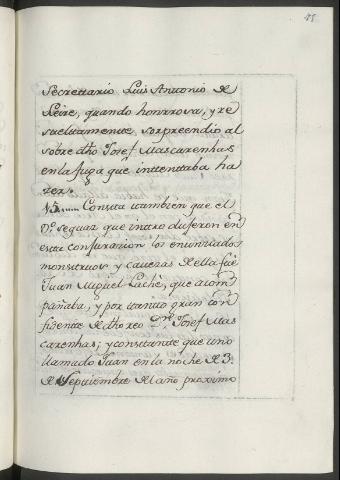 85
Secrettario Luis Antonio de
Leire, quando honrrosa, y re
sueltamente, sorprendio al
sobre dho Josef Mascarenhas
en la fuga que inttenttaba ha
zer.
15..... Consta también que el
que introduseron en
esta conjurazion los enunziados
monstruos y cavezas de ella fue
Juan Miguel, que acom
pañaba, y por tanto gran con
fidente de dho reo Josef Mas
carenhas; y constante que uno
llamado Juan en la noche de 3.
de Septiembre del año proximo